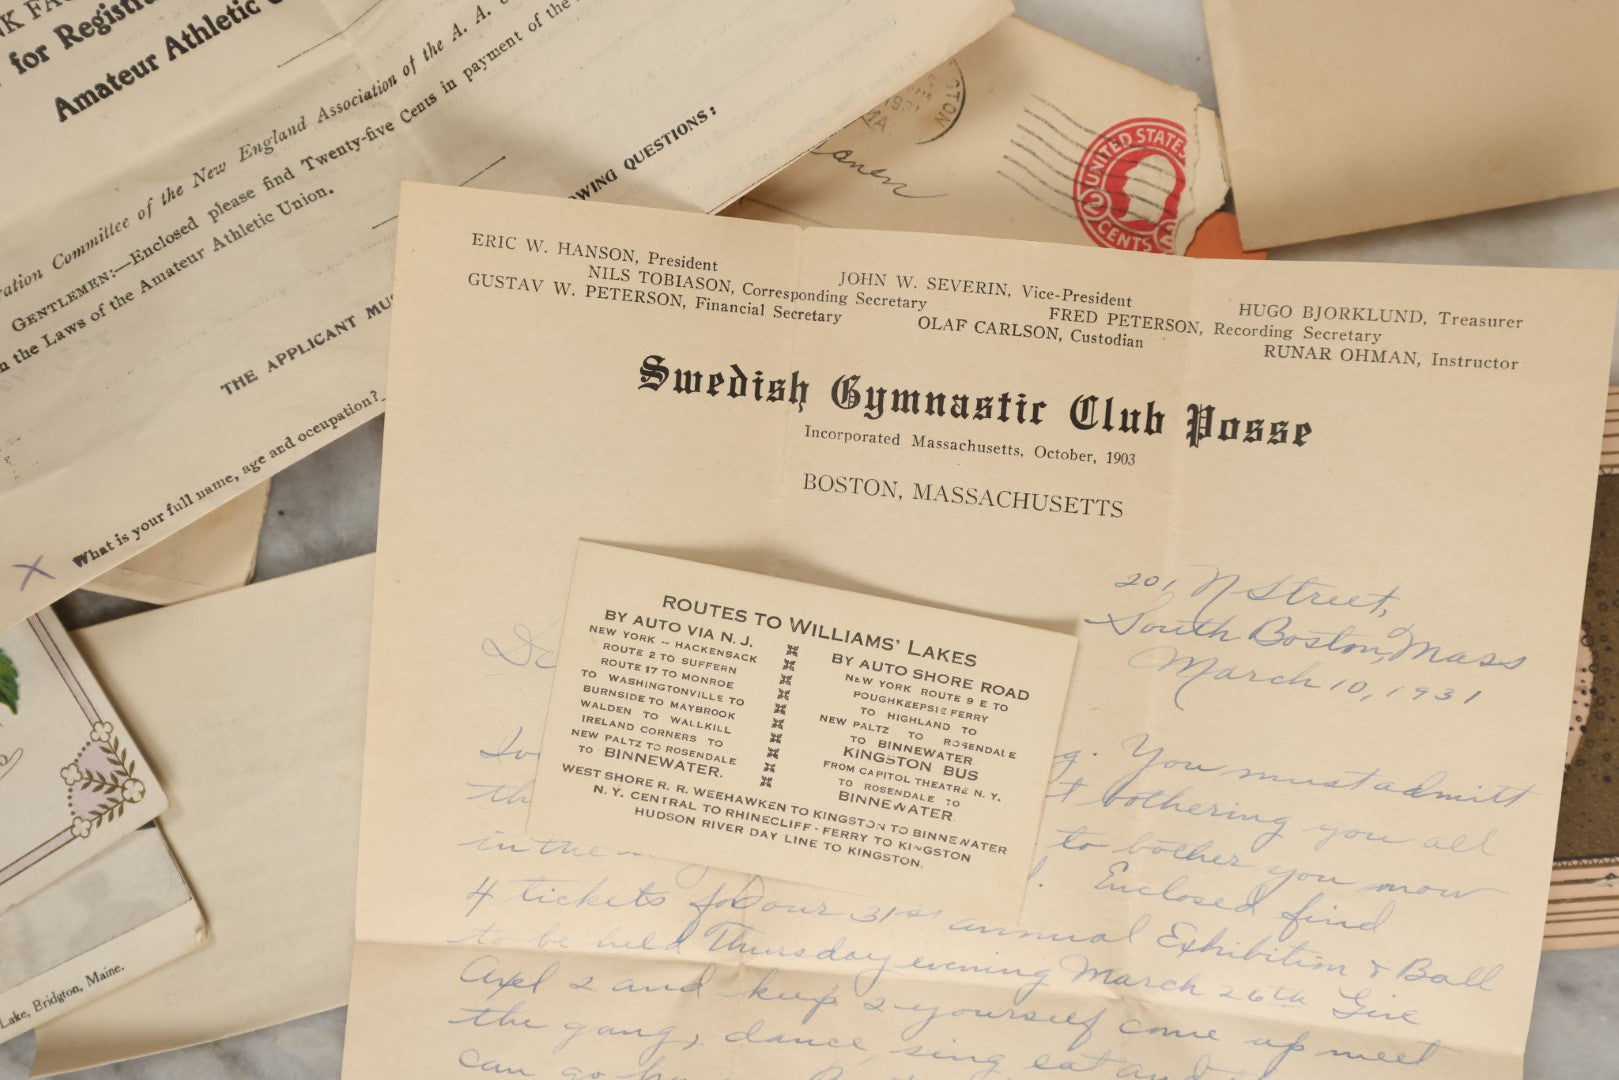 for Registra
Amateur Athletic
ration Committee of the New England Association of the A. A.
GENTLEMEN:—Enclosed please find Twenty-five Cents in payment of the
n the Laws of the Amateur Athletic Union.
THE APPLICANT MUS
OWING QUESTIONS:
What is your full name, age and occupation?
X
UNITED STATES
2 CENTS 2
ERIC W. HANSON, President
JOHN W. SEVERIN, Vice-President
HUGO BJORKLUND, Treasurer
NILS TOBIASON, Corresponding Secretary
FRED PETERSON, Recording Secretary
GUSTAV W. PETERSON, Financial Secretary
OLAF CARLSON, Custodian
RUNAR OHMAN, Instructor
Swedish Gymnastic Club Posse
Incorporated Massachusetts, October, 1903
BOSTON, MASSACHUSETTS
201 N Street,
South Boston, Mass
March 10, 1931
ROUTES TO WILLIAMS' LAKES
BY AUTO VIA N. J.
NEW YORK — HACKENSACK
ROUTE 2 TO SUFFERN
ROUTE 17 TO MONROE
TO WASHINGTONVILLE TO
BURNSIDE TO MAYBROOK
WALDEN TO WALLKILL
IRELAND CORNERS TO
NEW PALTZ TO ROSENDALE
TO BINNEWATER.
BY AUTO SHORE ROAD
NEW YORK ROUTE 9 E TO
POUGHKEEPSIE FERRY
TO HIGHLAND TO
NEW PALTZ TO ROSENDALE
TO BINNEWATER
KINGSTON BUS
FROM CAPITOL THEATRE N. Y.
TO ROSENDALE TO
BINNEWATER.
WEST SHORE R. R. WEEHAWKEN TO KINGSTON TO BINNEWATER
N. Y. CENTRAL TO RHINECLIFF - FERRY TO KINGSTON
HUDSON RIVER DAY LINE TO KINGSTON.
g. You must admitt
bothering you all
in the to bother you now
Enclosed find
4 tickets for our 31st annual Exhibition & Ball
to be held Thursday evening March 26th Give
Axel 2 and keep 2 yourself come up meet
the gang, dance, sing eat and
can go
Lake, Bridgton, Maine.